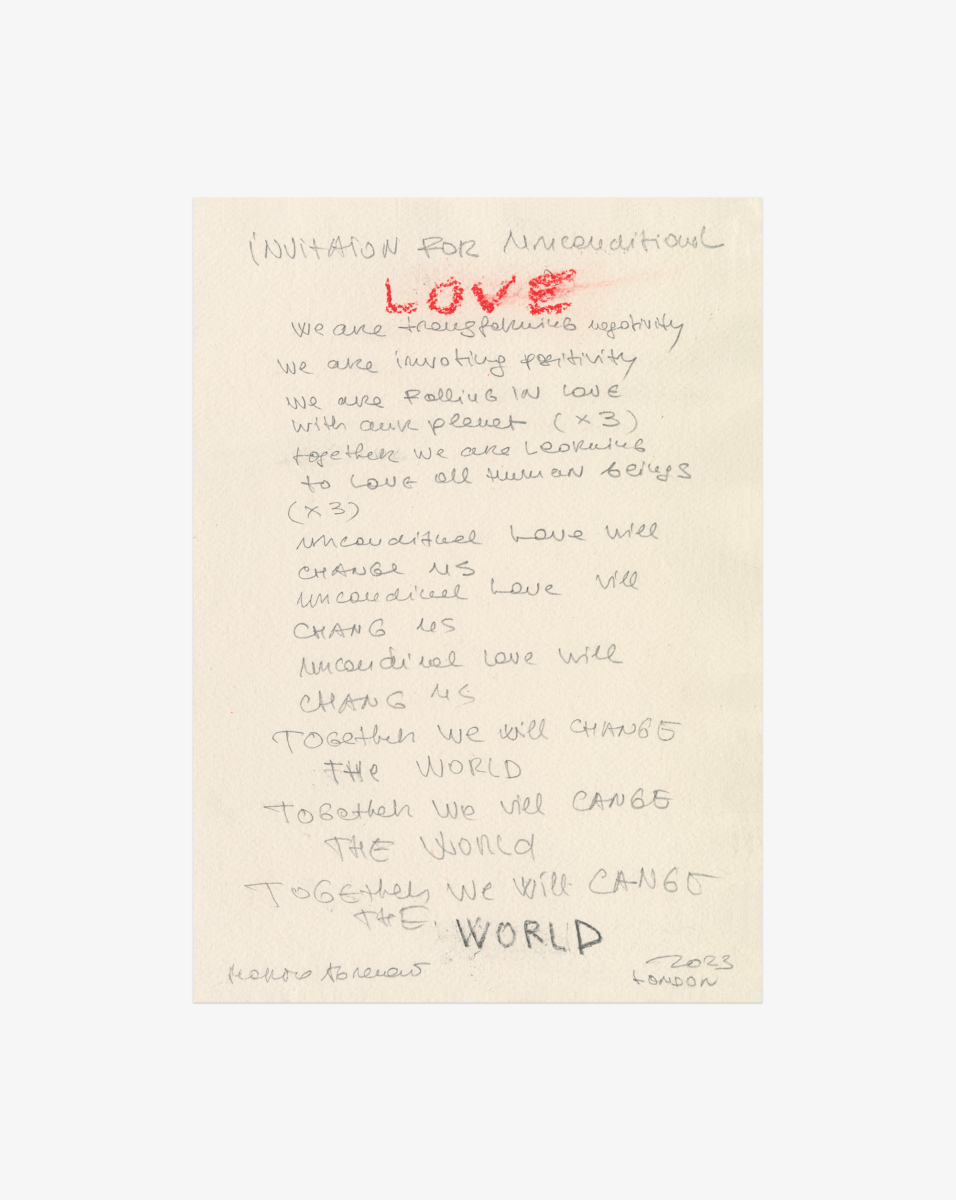 iNVitAiON FOR Unconditional
LOVE
We are transforming negativity
We are invoting positivity
We are Falling IN LOVE
with our planet (x3)
together we are Learning
to LOVE all Human beings
(x3)
uncondituel Love will
CHANGE US
uncondinel Love vill
CHANG US
uncondinal Love will
CHANG US
TOGether We will CHANGE
THe WORLD
TOGether We vill CANGE
THE WORLd
TOGEther We will CANGE
THE. WORLD
2023
LONDON